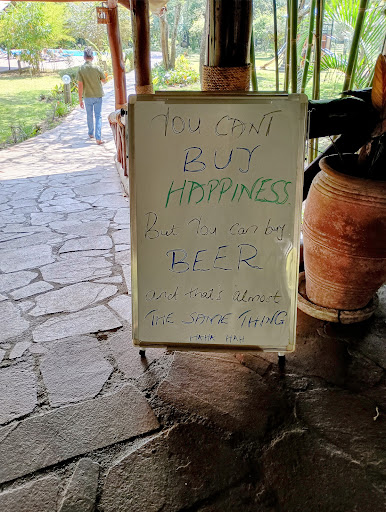 YOU CAN'T
BUY
HAPPINESS.
But You can buy
BEER
and that's almost
THE SAME THING
HAHA HAH